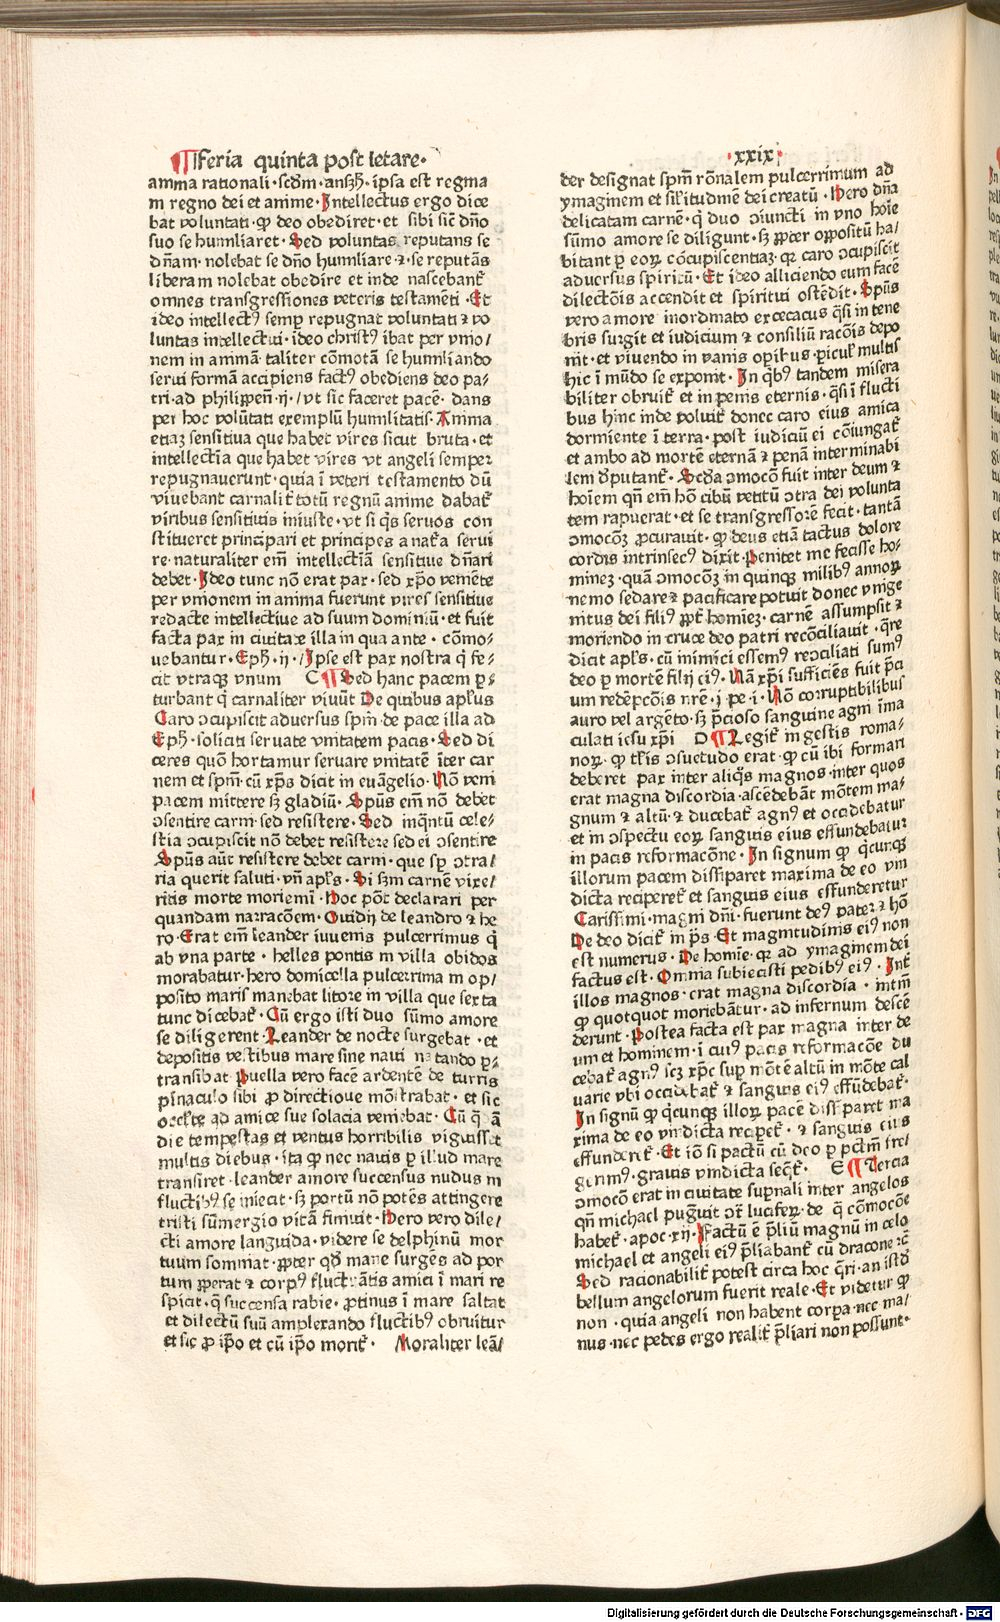 ¶Feria quinta post letare·
·xxix·
amma rationali·scđm·ansħ·īpsa est regina
in regno dei et anime·Intellectus ergo dice
bat voluntati·ꝙ deo obediret·et sibi sic̄ dn̄o
suo se humiliaret·Sed voluntas reputans se
dn̄am·nolebat se dn̄o humiliare·⁊·se reputās
liberam nolebat obedire et inde nascebant᷑
omnes transgressiones veteris testamēti·Et
ideo intellectꝰ semp repugnat voluntati ⁊ vo
luntas intellectui·ideo christꝰ ibat per vnio/
nem in animā·taliter cōmotā se humiliando
serui formā accipiens factꝰ obediens deo pa/
tri·ad philippen̄·ij·/vt sic faceret pacē·dans
per hoc volūtati exemplū humilitatis·Anima
etiaꝫ sensitiua que habet vires sicut bruta·et
intellectīa que habet vires vt angeli semper
repugnauerunt·quia ī veteri testamento dū
viuebant carnalit᷑ totū regnū anime dabat᷑
viribus sensitiuis iniuste·vt si q̄s seruos con
stitueret principari et principes a nat᷑a serui
re·naturaliter em̄ intellectīā sensitiue dn̄ari
debet·Ideo tunc nō erat pax·sed xp̄o veniēte
per vnionem in anima fuerunt vires sensitiue
redacte intellectiue ad suum dominiū·et fuit
facta pax in ciuitate illa in qua ante·cōmo/
uebantur·Eph·ij·/Ipse est pax nostra q̄ fe/
cit vtraqꝫ vnum C ¶Sed hanc pacem ꝑ/
turbant q̄ carnaliter viuūt De quibus apl̄us
Caro ↄcupiscit aduersus spm̄·de pace illa ad
Eph·soliciti seruate vnitatem pacis·Sed di
ceres quō hortamur seruare vnitatē īter car
nem et spm̄·cū xp̄s dicit in euāgelio·Nō veni
pacem mittere sꝫ gladiū·Sp̄us em̄ nō debet
ↄsentire carni·sed resistere·Sed inq̄ntū cele/
stia ↄcupiscit nō debet resistere sed ei ↄsentire
Sp̄us aūt resistere debet carni·que sp̄ ↄtra/
ria querit saluti·vn̄ apl̄s·Si sꝫm carnē vixe/
ritis morte moriemī·Hoc pōt declarari per
quandam narracōem·Ouidij de leandro ⁊ he
ro·Erat em̄ leander iuuenis pulcerrimus q̄
ab vna parte·helles pontis in villa obidos
morabatur·hero domicella pulcerrima in op/
posito maris manebat litore in villa que sexta
tunc dicebat᷑·Cū ergo isti duo sūmo amore
se diligerent·Leander de nocte surgebat·et
depositis vestibus mare sine naui natando ꝑ/
transibat Puella vero facē ardentē de turris
pīnaculo sibi ꝓ directione mōstrabat·et sic
occl᷑te ad amice sue solacia veniebat·Cū q̄dā
die tempestas et ventus horribilis viguisset
multis diebus·ita ꝙ nec nauis ꝑ illud mare
transiret·leander amore succensus nudus in
fluctibꝰ se iniecit·sꝫ portū nō potēs attingere
tristi sūmergio vitā finiuit·Hero vero dile/
cti amore languida·videre se delphinū mor
tuum somniat·ꝓpter qđ mane surgēs ad por
tum ꝓperat ⁊ corpꝰ fluctuātis amici ī mari re
spicit·q̄ succensa rabie·ꝓtinus ī mare saltat
et dilectū suū amplexando fluctibꝰ obruitur
et sic ꝓ ip̄o et cū ip̄o morit᷑· Moraliter leā/
der designat spm̄ rōnalem pulcerrimum ad
ymaginem et sil᷑itudinē dei creatū·Hero dn̄a
delicatam carnē·q̄ duo ↄiuncti in vno hoīe
sūmo amore se diligunt·sꝫ ꝓpter oppositū ha/
bitant ꝑ eoꝝ cōcupiscentiaꝫ·qꝛ caro ↄcupiscit
aduersus spiritū·Et ideo alliciendo eum facē
dilectōis accendit et spiritui ostēdit·Sp̄us
vero amore inordinato excecacus q̄si in tene
bris surgit et iudicium ⁊ consiliū racōis depo
nit·et viuendo in vanis opībus·ꝑicul᷑ multis
hic ī mūdo se exponit·In q̄bꝰ tandem misera
biliter obruit᷑ et in penis eternis·q̄si ī flucti
bus hinc inde voluit᷑ donec caro eius amica
dormiente ī terra·post iudiciū ei cōiungat᷑
et ambo ad mortē eternā ⁊ penā interminabi
lem đputant᷑·Scđa ↄmocōꝫ fuit inter deum ⁊
hoīem qn̄ em̄ hō cibū vetitū ↄtra dei volunta
tem rapuerat·et se transgressorē fecit·tantā
ↄmocōꝫ ꝓcurauit·ꝙ deus etiā tactus dolore
cordis intrinsecꝰ dixit·Penitet me fecisse ho/
mineꝫ·quā ↄmocōꝫ in quinqꝫ milibꝰ annoꝝ
nemo sedare ⁊ pacificare potuit donec vnige
nitus dei filiꝰ ꝓpt᷑ homīeꝫ·carnē assumpsit ⁊
moriendo in cruce deo patri recōciliauit·q̄re
dicit apl̄s·cū inimici essemꝰ reↄciliati sumꝰ
deo ꝑ mortē filij eiꝰ·Nā xp̄i sufficiēs fuit p̄ci
um redēpcōis nr̄e·j·pe·i·Nō corruptibilibus
auro vel argēto·sꝫ p̄cioso sanguine agni īma/
culati iesu xp̄i D ¶Legit᷑ in gestis roma/
noꝝ·ꝙ tl̄is ↄsuetudo erat·ꝙ cū ibi formari
deberet pax inter aliq̄s magnos·inter quos
erat magna discordia·ascēdebāt mōtem ma/
gnum ⁊ altū·⁊ ducebat᷑ agnꝰ et occidebatur
et in ↄspectu eoꝝ sanguis eius effundebatur
in pacis reformacōne·In signum ꝙ q̄cunqꝫ
illorum pacem dissiparet maxima de eo vin
dicta reciperet᷑ et sanguis eius effunderetur
Carissimi·magni dn̄i·fuerunt deꝰ pater ⁊ hō
De deo dicit᷑ in p̄s·Et magnitudinis eiꝰ non
est numerus·De homīe·qꝛ ad ymaginem dei
factus est·Omnia subiecisti pedibꝰ eiꝰ·Int᷑
illos magnos·erat magna discordia·intm̄
ꝙ quotquot moriebātur·ad infernum descē
derunt·Postea facta est pax magna inter de
um et hominem·ī cuiꝰ pacis reformacōe du
cebat᷑ agnꝰ scꝫ xp̄c sup mōtē altū in mōte cal
uarie vbi occidebat᷑ ⁊ sanguis eiꝰ effūdebat᷑·
In signū ꝙ q̄cunqꝫ illoꝝ pacē dissiparet ma
xima de eo vindicta recipet᷑·⁊ sanguis eius
effunderet᷑·Et iō si pactū cū deo ꝑ pctm̄ fre/
gerimꝰ·grauis vindicta seq̄t᷑· E ¶Tercia
ↄmocō erat in ciuitate supnali inter angelos
qn̄ michael pugnuit ↄt᷑ luciferꝝ·de q̄ cōmocōne
habet᷑·apoc·xij·Factū ē p̄liū magnū in celo
michael et angeli eiꝰ p̄liabant᷑ cū dracone ⁊c̄
Sed racionabilit᷑ potest circa hoc q̄ri·an istđ
bellum angelorum fuerit reale·Et videtur ꝙ
non·quia angeli non habent corpa·nec ma/
nus·nec pedes ergo realit᷑ p̄liari non possunt·
Digitalisierung gefördert durch die Deutsche Forschungsgemeinschaft · DFG